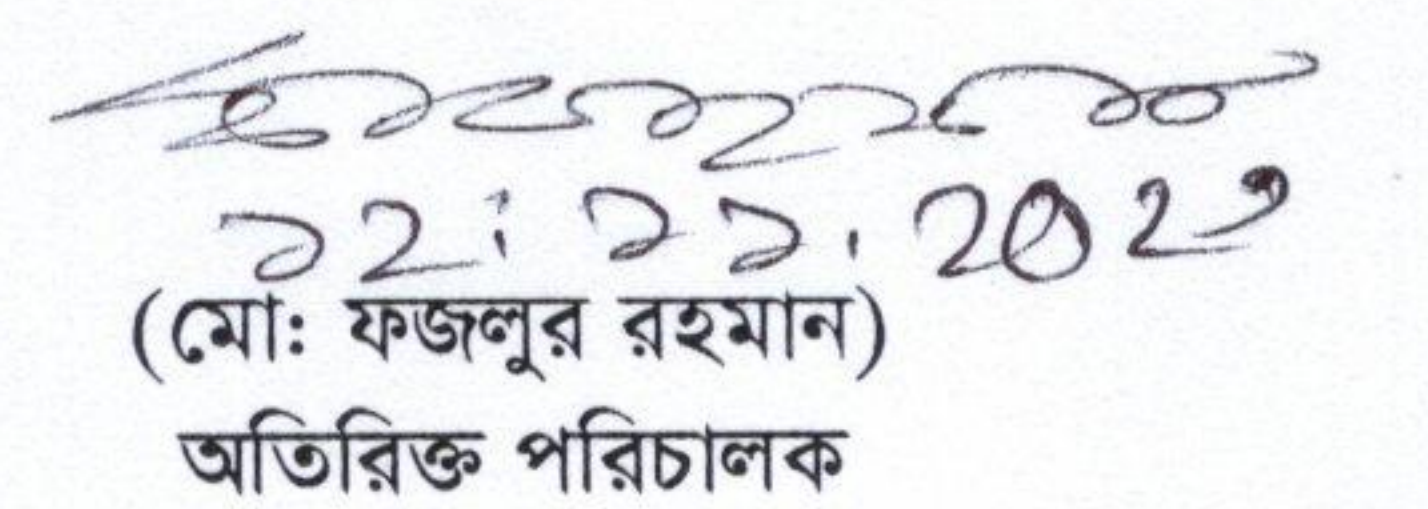 ১২.১১.২০২১
(মো: ফজলুর রহমান)
অতিরিক্ত পরিচালক